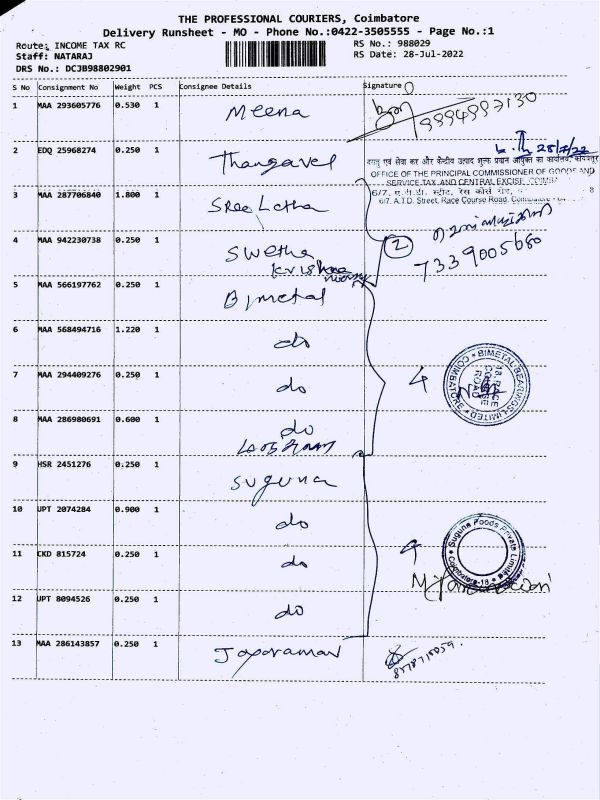 THE PROFESSIONAL COURIERS, Coimbatore
Delivery Runsheet - MO - Phone No.:0422-3505555 - Page No.:1
Route: INCOME TAX RC
RS No.: 988029
Staff: NATARAJ
RS Date: 28-Jul-2022
DRS No.: DCJB98802901
S No Consignment No Weight PCS Consignee Details Signature
1 MAA 293605776 0.530 1 Meena 9994993130
2 EDQ 25968274 0.250 1 Thangavel 28/7/22
OFFICE OF THE PRINCIPAL COMMISSIONER OF GOODS AND
SERVICE TAX AND CENTRAL EXCISE,
6/7. A.T.D. Street, Race Course Road,
3 MAA 287706840 1.800 1 Sree Latha
4 MAA 942230738 0.250 1 Swetha 2
krishna 7339005680
5 MAA 566197762 0.250 1 Bimetal
6 MAA 568494716 1.220 1 do
7 MAA 294409276 0.250 1 do 4
BIMETAL BEARINGS LIMITED COIMBATORE
18, RACE COURSE ROAD
8 MAA 286980691 0.600 1 do
9 HSR 2451276 0.250 1 Suguna
10 UPT 2074284 0.900 1 do
11 CKD 815724 0.250 1 do 4
Suguna Foods Private Limited
Coimbatore-18
12 UPT 8094526 0.250 1 do
13 MAA 286143857 0.250 1 Jayaraman